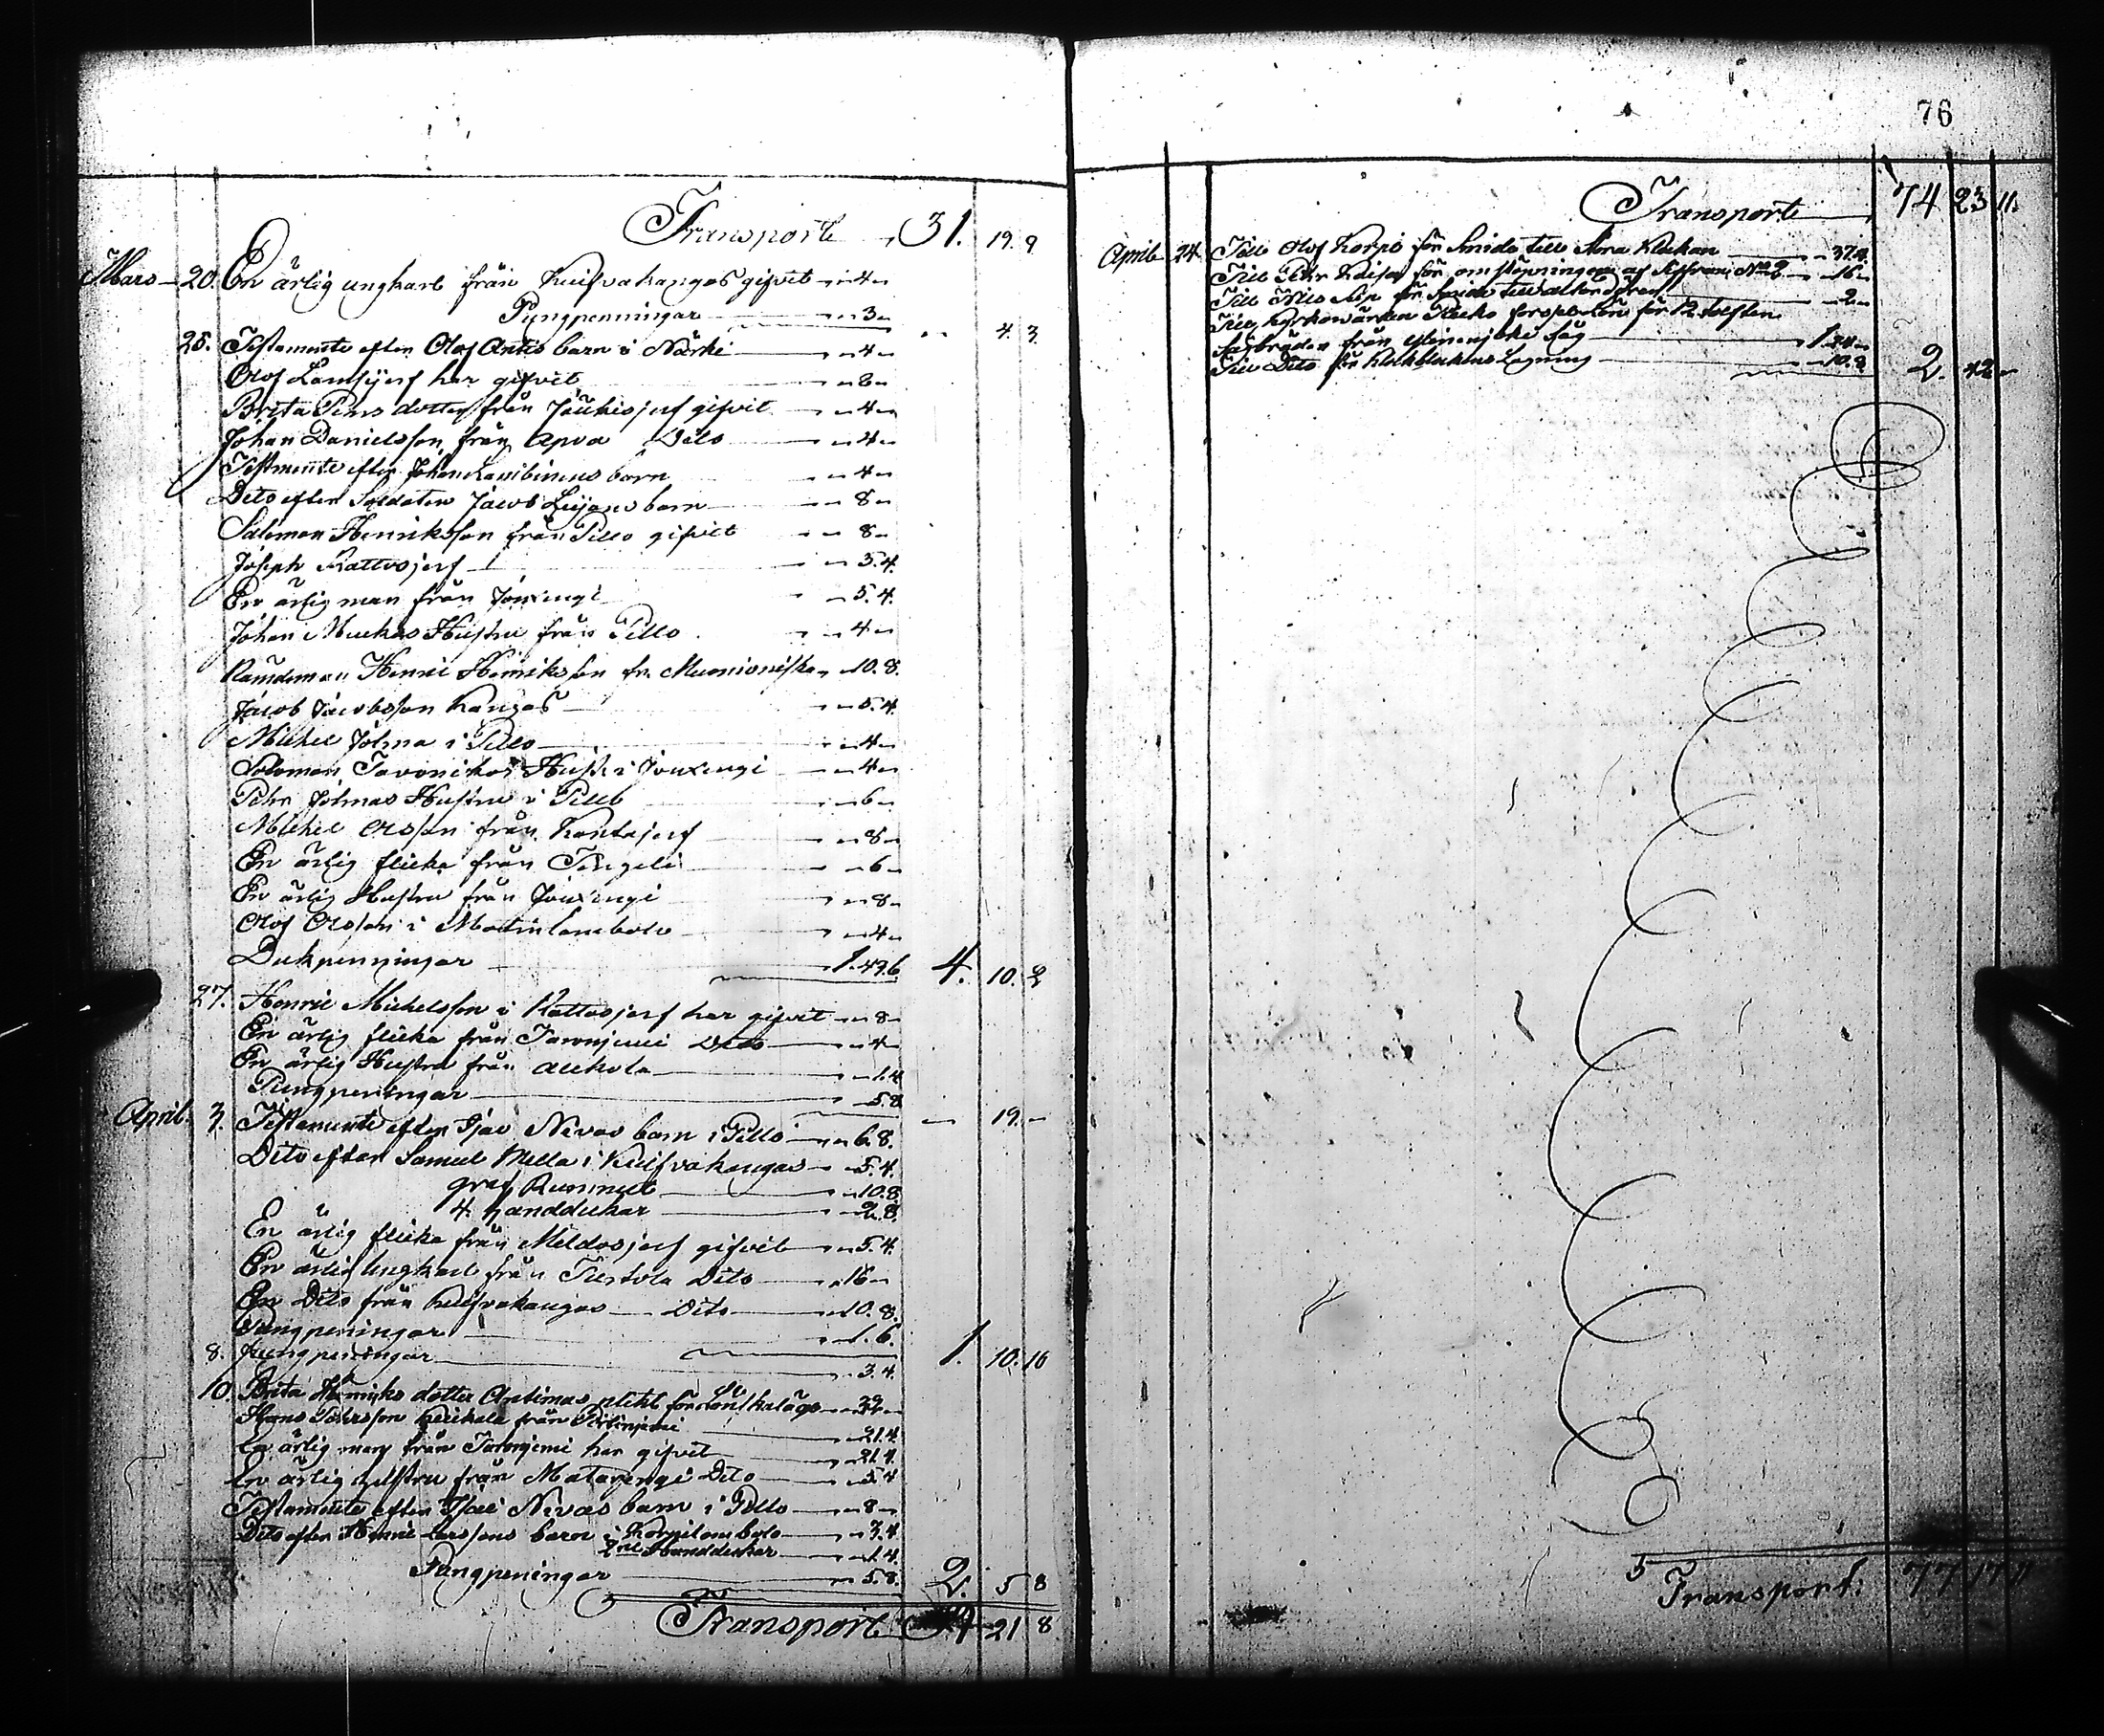 Transporte 31. 19. 9
Mars 20. En ärlig ungkarl från Kuifvakangas gifvit 4
Pungpenningar 3 4. 3
25. Testamente efter Olof Antis barn i Närki 4
Olof Lamsijerf har gifvit 8
Brita Pers dotter från Jäukisjerf gifvit 4
Johan Danielsson från Apua Dito 4
Testmente efter Johan barn 4
Dito efter Soldaten Jacob barn 8
Salomon Henriksson från Pello gifvit 8
Joseph Rattosjerf 5.4.
En ärlig man från Jouxengi 5.4.
Johan Muckas Hustru från Pello 4
Nämdeman Henric Henriksson fr. Muonioniska 10.8.
Jacob Jacobsson Kangas 5.4
Michel Jolma i Pello 4
Salomon Tavonikos Hust. i Jouxengi 4
Pehr Jolmas Hustru i Pello 6
Michel Olsson från Kantajerf 8
En ärlig flicka från Tengeli 6
En ärlig Hustru från Jouxengi 8
Olof Olsson i Martinlombolo 4
Dukpenningar 1.49.6 4. 10. 2
27. Henric Michelsson i Rattosjerf har gifvit 8
En ärlig flicka från Jaronjemi Dito 4
En ärlig Hustru från Alkola 1.4
Pungpeningar 5.8 19.
April. 3. Testamente efter Isac Nivas barn i Pello 6.8.
Dito efter Samuel Mella i Kuifvakangas 5.4.
graf Rummet 10.8
4 handdukar 2.8.
En ärlig flicka från Meldosjerf gifvit 5.4.
En ärlig Ungkarl från Turtola Dito 16
En Dito från Kuifvakangas Dito 10.8.
Pungpeningar 1.6. 1. 10. 10
8. Pungpeningar 3.4.
10. Brita Henriks dotter Antimas plikt för 32
Hans Pehrsson från 21.4
En ärlig man från Jaronjemi har gifvit 21.4.
En ärlig Hustru från Matarengi Dito 5.4
Testamente efter Isac Nivas barn i Pello 8
Dito efter Henric Larssons barn i Korpilombolo 3.4
2ne Handdukar 1.4.
Pungpeningar 5.8. 2. 5 8
Transport 21 8
76
Transporte 74 23 11.
April 24 Till Olof Korpi för Smide till Stora Klockan 37.4.
Till Pehr Kaisa för omstöpningen af No 2 16
Till Nils för Smide till 2
Till Kyrkowärden för 12 tolfter
Sågbräder från Såg 1.
Till Dito för Lagning 10.8 2. 42
Transport. 77 17 11